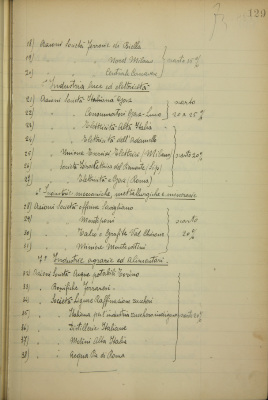 120
18) Azioni Società Ferrovie di Biella
19) " " Nord Milano
20) " " scarto 25%
Industria luce ed elettricità
21) Azioni Società Italiana Gas scarto
22) " " Consumatori Gas 20 a 25%
23) " " Elettricità Alta Italia
24) " " Elettricità dell'Adamello
25) " " Unione Esercizi Elettrici (Milano) scarto 20%
26) " Società Idroelettrica del Piemonte (Sip)
27) " " Elettricità e Gas (Roma)
Industrie meccaniche, metallurgiche e minerarie
28) Azioni Società officine Savigliano
29) " " Monteponi scarto
30) " " Talco e Grafite Val Chisone 20%
31) " " Miniere
Industrie agrarie ed alimentari
32) Azioni Società Acqua potabile Torino
33) " " Bonifiche Ferraresi
34) " Società Ligure Raffineria zuccheri
35) " " Italiana per l'industria zucchero indigeno scarto 20%
36) " " Distillerie Italiane
37) " " Molini Alta Italia
38) " " Acqua Pia di Roma